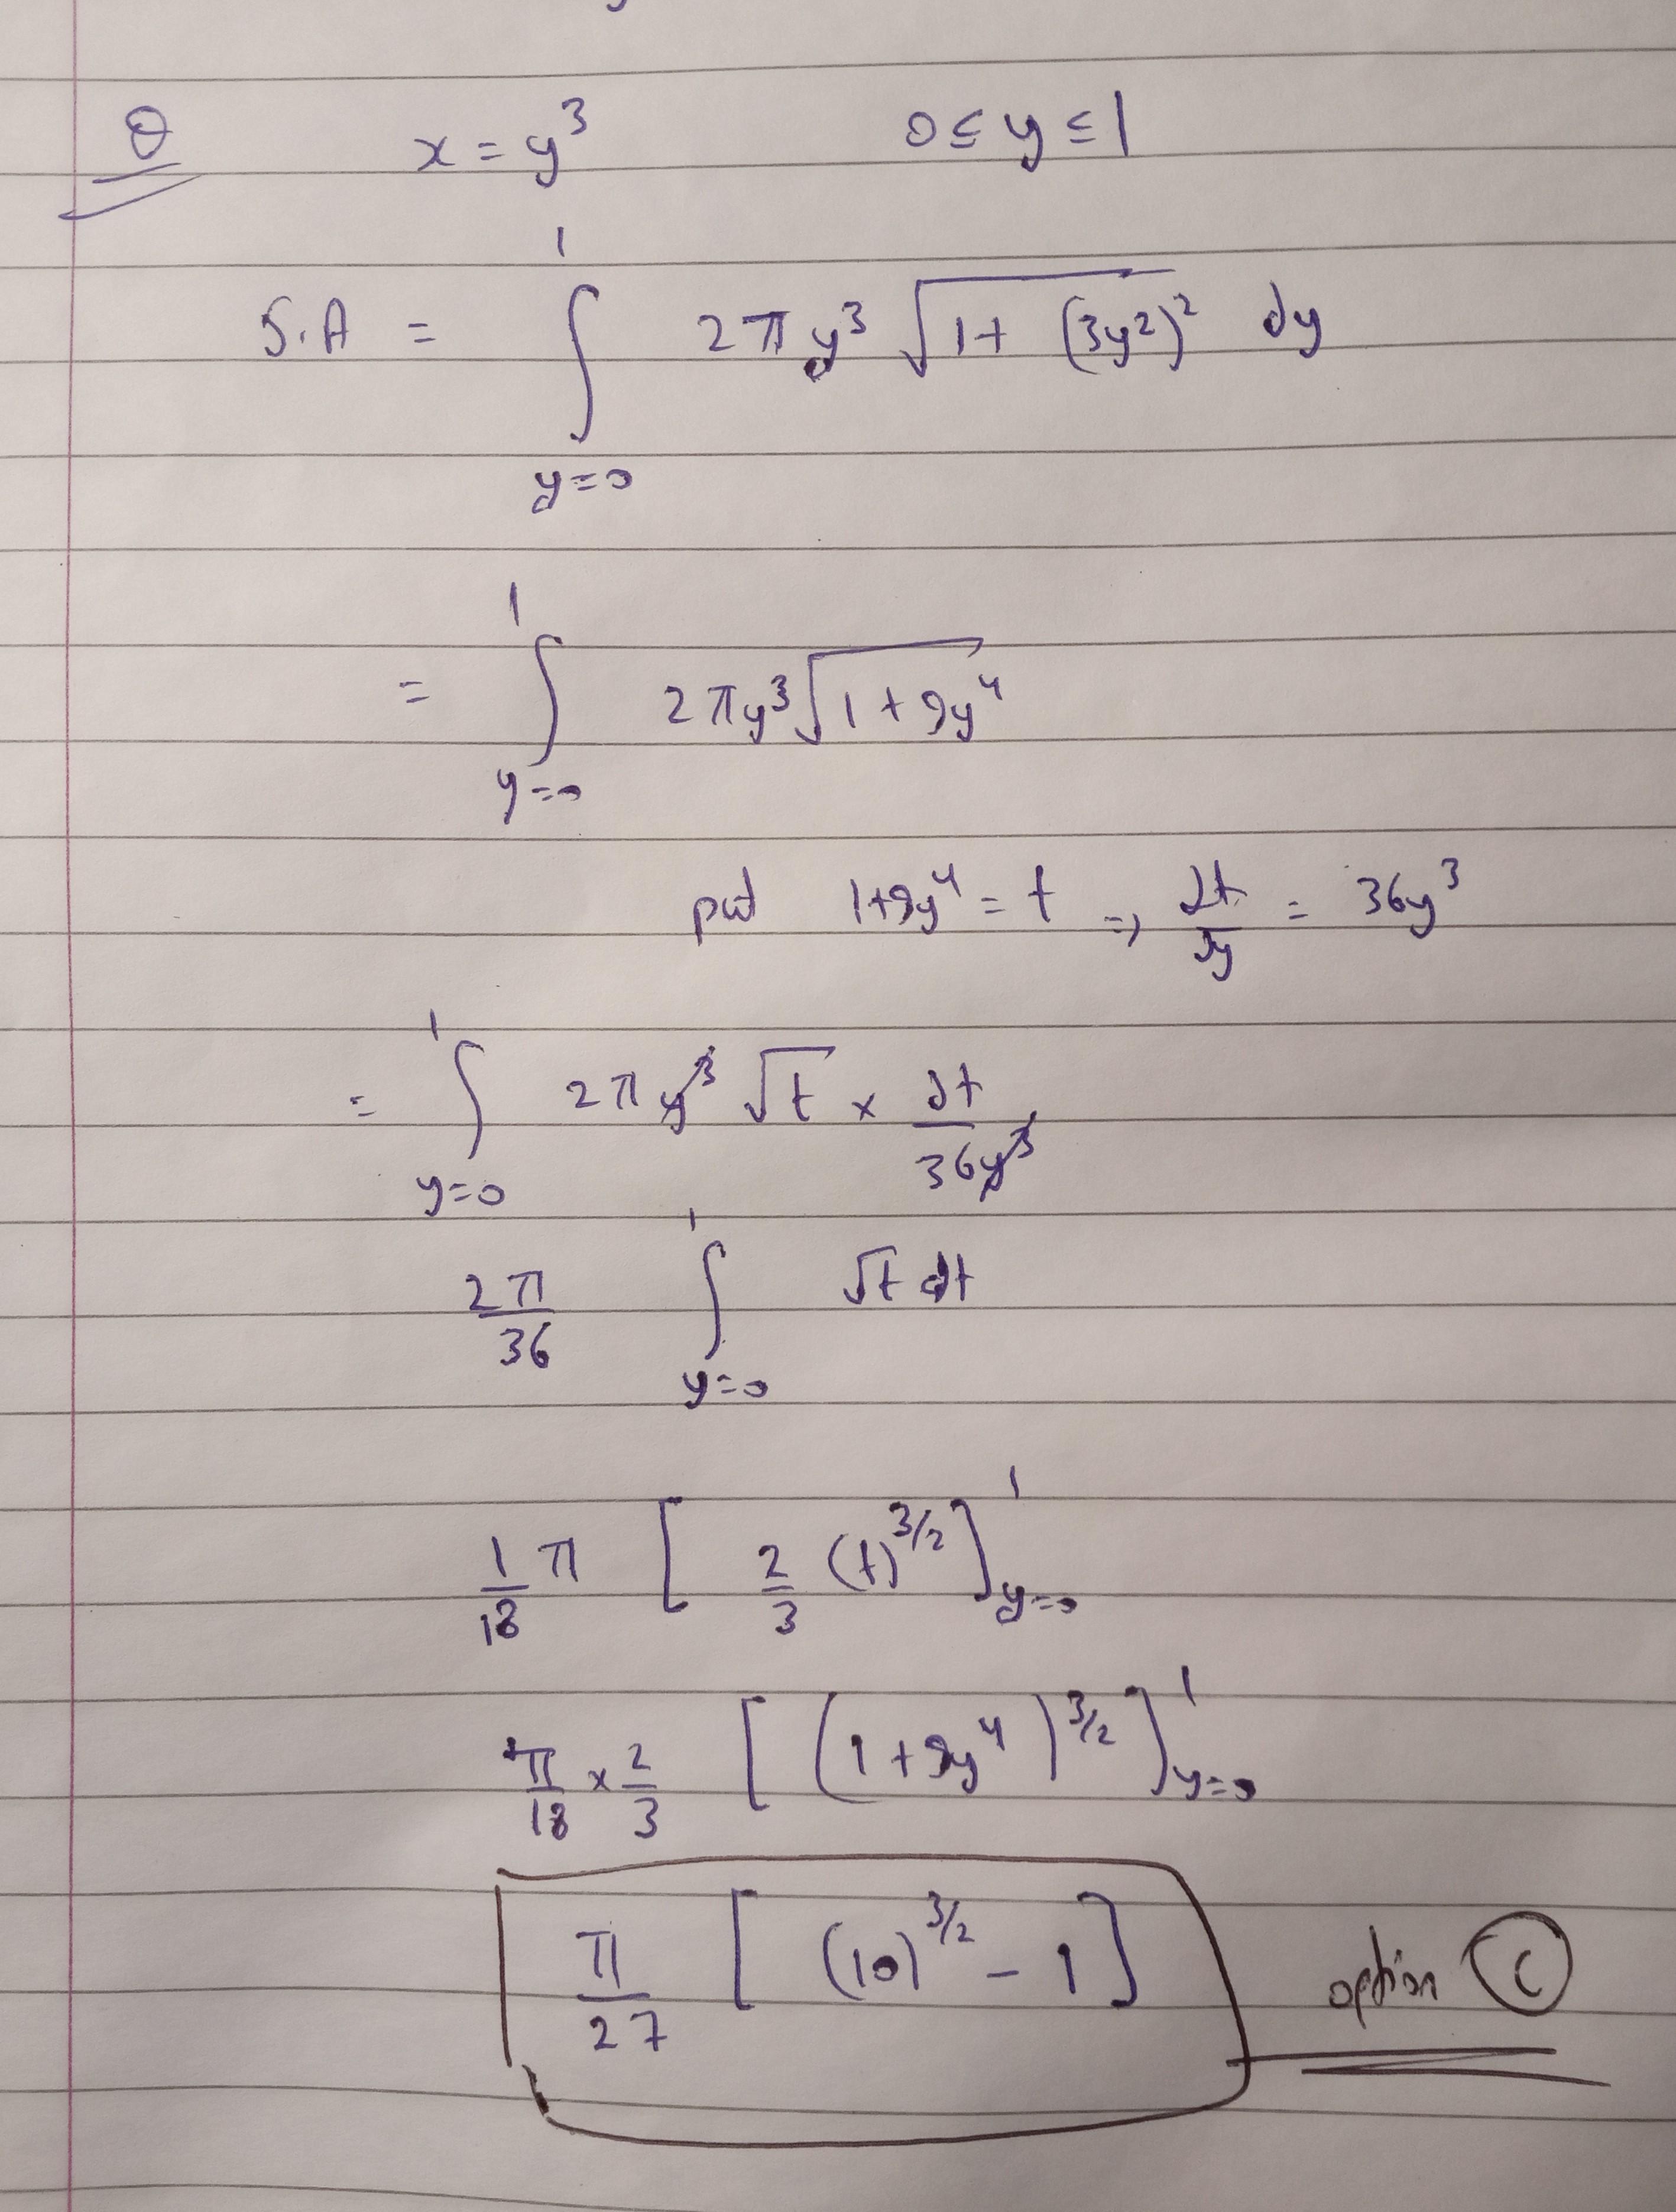 Q x = y³ 0 ≤ y ≤ 1
S.A = ∫_{y=0}^{1} 2πy³ √(1 + (3y²)²) dy
= ∫_{y=0}^{1} 2πy³ √(1 + 9y⁴)
put 1+9y⁴ = t ⇒ dt/dy = 36y³
= ∫_{y=0}^{1} 2πy³ √t × dt/36y³
2π/36 ∫_{y=0}^{1} √t dt
1/18 π [ 2/3 (t)^{3/2} ]_{y=0}^{1}
π/18 × 2/3 [ (1 + 9y⁴)^{3/2} ]_{y=0}^{1}
π/27 [ (10)^{3/2} - 1 ] option C